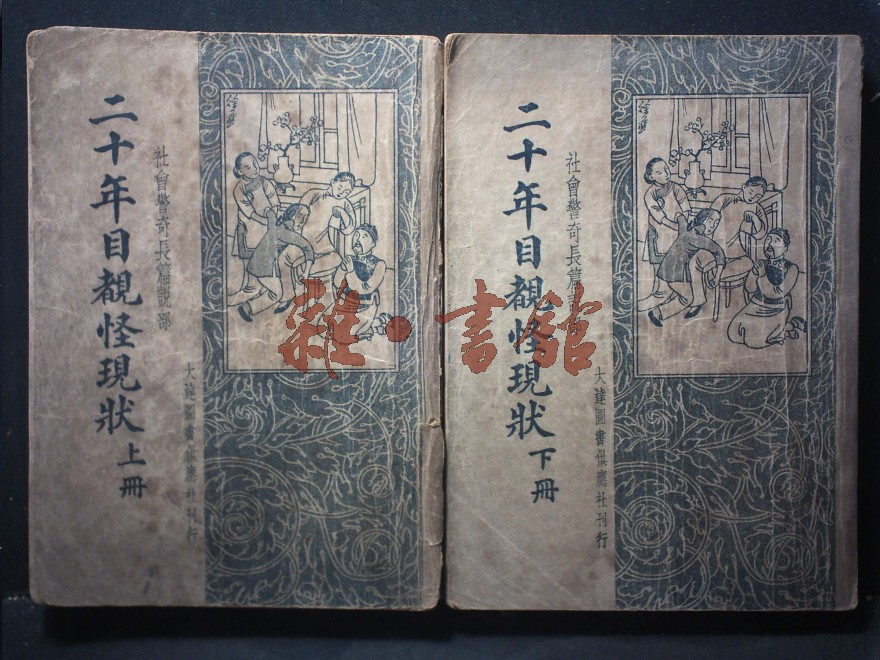 二十年目覩怪現狀 上冊
社會警奇長篇說部
大達圖書供應社刊行
二十年目覩怪現狀 下冊
社會警奇長篇
大達圖書供應社刊行
雜·書館